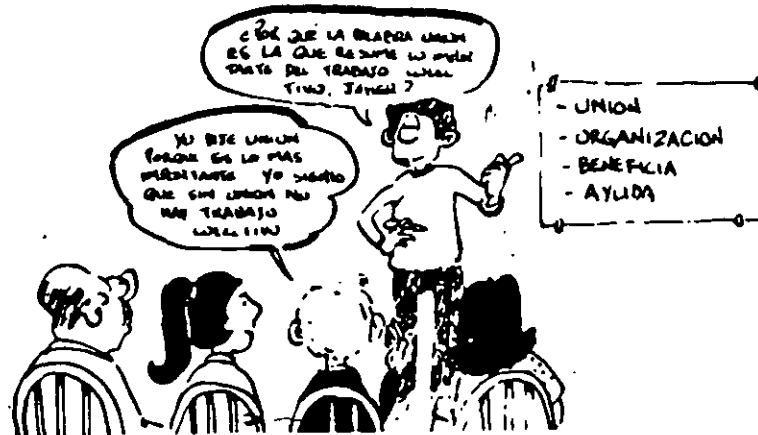 ¿POR QUÉ LA PALABRA UNION
ES LA QUE RESUME LO
PARTE DEL TRABAJO
YO DIJE UNION
PORQUE ES LO MAS
IMPORTANTE YO
QUE SIN UNION NO
HAY TRABAJO
- UNION
- ORGANIZACION
- BENEFICIA
- AYUDA